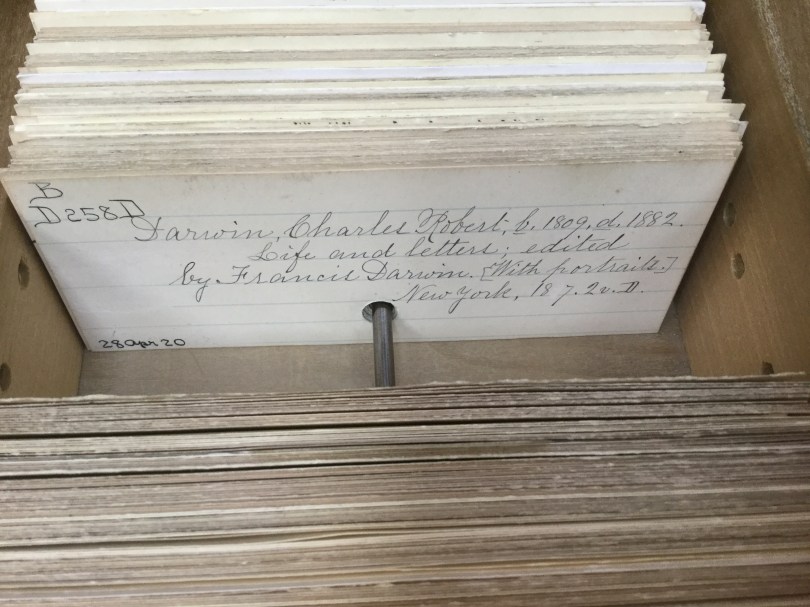 B
D258D
Darwin, Charles Robert, b. 1809, d. 1882.
Life and letters; edited
by Francis Darwin. [With portraits.]
New York, 18 7. 2v. D.
28 Apr 20